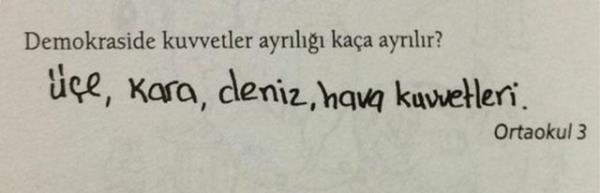 Demokraside kuvvetler ayrılığı kaça ayrılır?
üçe, kara, deniz, hava kuvvetleri.
Ortaokul 3